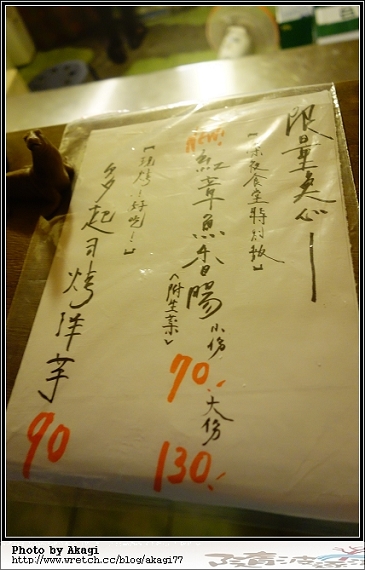 限量奌心—
【深夜食堂特別版】
NEW! 紅章魚香腸 小份 70.- 大份 130.-
<附生菜>
【現烤!好吃!】
多起司烤洋芋 90
Photo by Akagi
http://www.wretch.cc/blog/akagi77